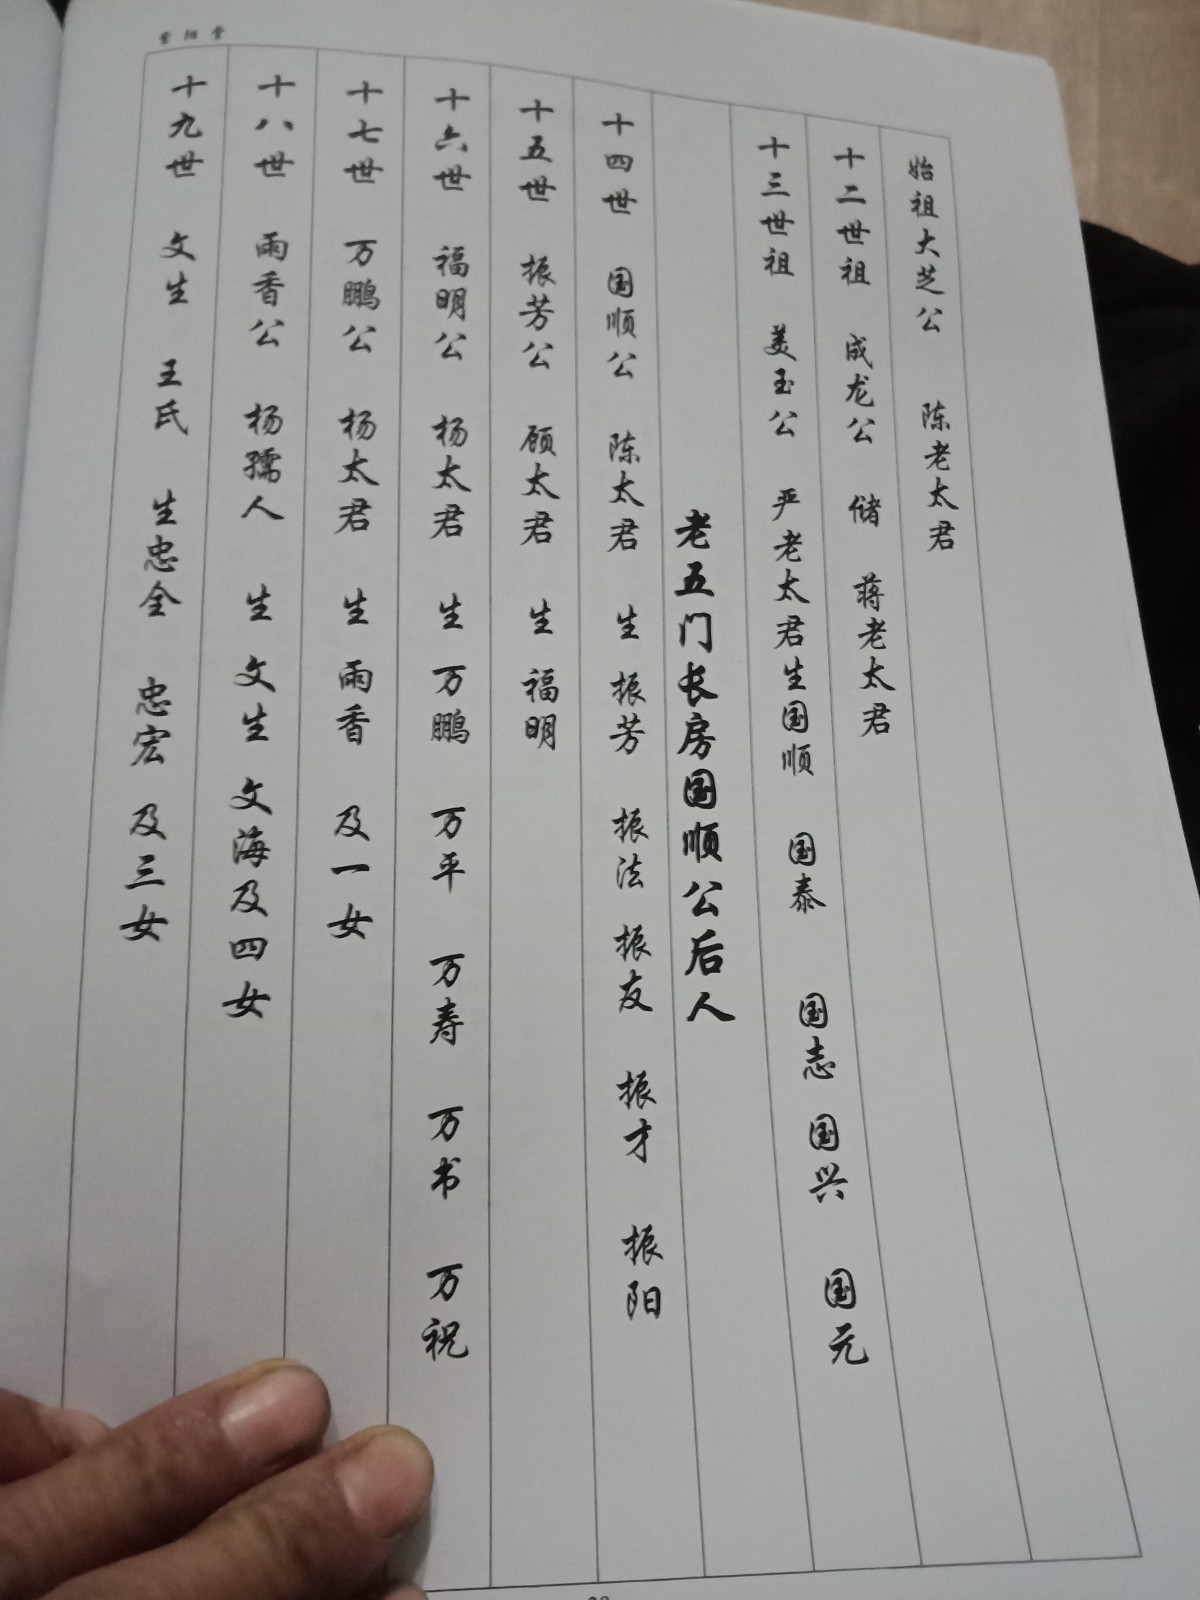 紫阳堂
始祖大芝公 陈老太君
十二世祖 成龙公 储 蒋老太君
十三世祖 美玉公 严老太君生国顺 国泰 国志 国兴 国元
老五门长房国顺公后人
十四世 国顺公 陈太君 生 振芳 振法 振友 振才 振阳
十五世 振芳公 顾太君 生 福明
十六世 福明公 杨太君 生 万鹏 万平 万寿 万书 万祝
十七世 万鹏公 杨太君 生 雨香 及一女
十八世 雨香公 杨孺人 生 文生 文海及四女
十九世 文生 王氏 生忠全 忠宏 及三女